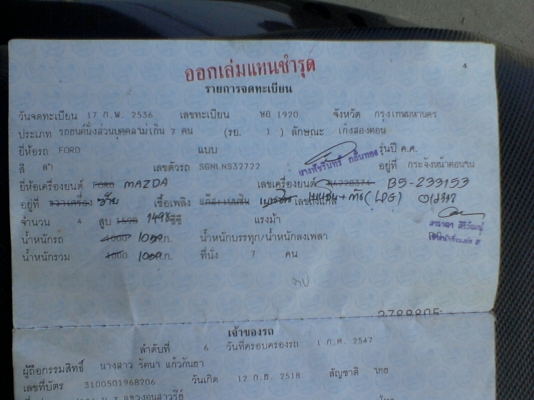 ออกเล่มแทนชำรุด
4
รายการจดทะเบียน
วันจดทะเบียน 17 ก.พ. 2536 เลขทะเบียน 1920 จังหวัด กรุงเทพมหานคร
ประเภท รถยนต์นั่งส่วนบุคคลไม่เกิน 7 คน (รย. 1) ลักษณะ เก๋งสองตอน
ยี่ห้อรถ FORD แบบ รุ่นปี ค.ศ.
สี เลขตัวรถ SGNLNS32722 อยู่ที่ กระจังหน้าตอนขวา
ยี่ห้อเครื่องยนต์ FORD MAZDA เลขเครื่องยนต์ B5-233153
อยู่ที่ ซ้าย เชื้อเพลิง เบนซิน + ก๊าซ (LPG)
จำนวน 4 สูบ 1498 ซีซี แรงม้า
น้ำหนักรถ 1000 กก. น้ำหนักบรรทุก/น้ำหนักลงเพลา
น้ำหนักรวม 1000 กก. ที่นั่ง 7 คน
เจ้าของรถ
ลำดับที่ 6 วันที่ครอบครองรถ 1 ก.ค. 2547
ผู้ถือกรรมสิทธิ์ นางสาว รัตนา แก้วกันยา
เลขที่บัตร 3100501968206 วันเกิด 12 ก.ย. 2518 สัญชาติ ไทย